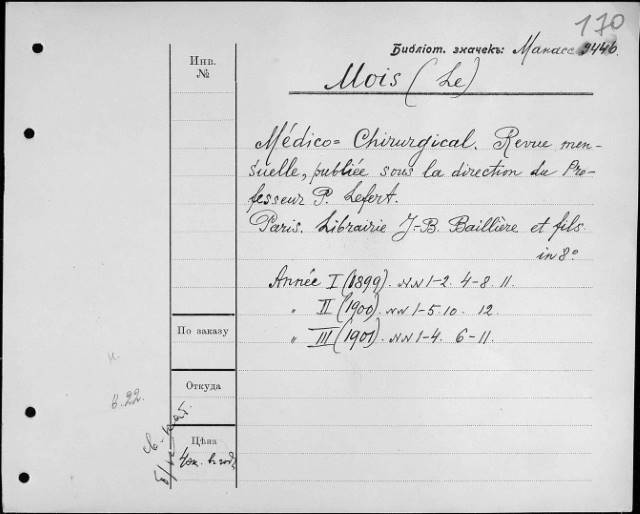 170
Библіот. значекъ: Манасс 9446.
Инв.
№
Mois (Le)
Médico= Chirurgical. Revue men-
suelle, publiée sous la direction du Pro-
fesseur P. Lefert.
Paris. Librairie J-B. Baillière et fils
in 8°
Année I (1899). NN 1-2. 4-8. 11.
" II (1900). NN 1-5. 10. 12.
" III (1901). NN 1-4. 6-11.
По заказу
Откуда
6.22.
Цѣна